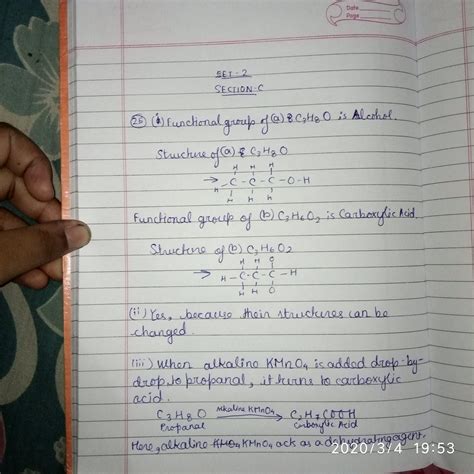 Date
Page
SET-2
SECTION-C
26 (i) Functional group of (a) C3H8O is Alcohol.
Structure of (a) C3H8O
H H H
→ H-C-C-C-O-H
H H H
Functional group of (b) C3H6O2 is Carboxylic Acid.
Structure of (b) C3H6O2
H H O
→ H-C-C-C-H
H H O
(ii) Yes, because their structures can be
changed.
(iii) When alkaline KMnO4 is added drop-by-
drop to propanal, it turns to carboxylic
acid.
C3H8O Alkaline KMnO4 → C2H7COOH
Propanal Carboxylic Acid
Here, alkaline KMnO4 act as a dehydrating agent.
2020/3/4 19:53